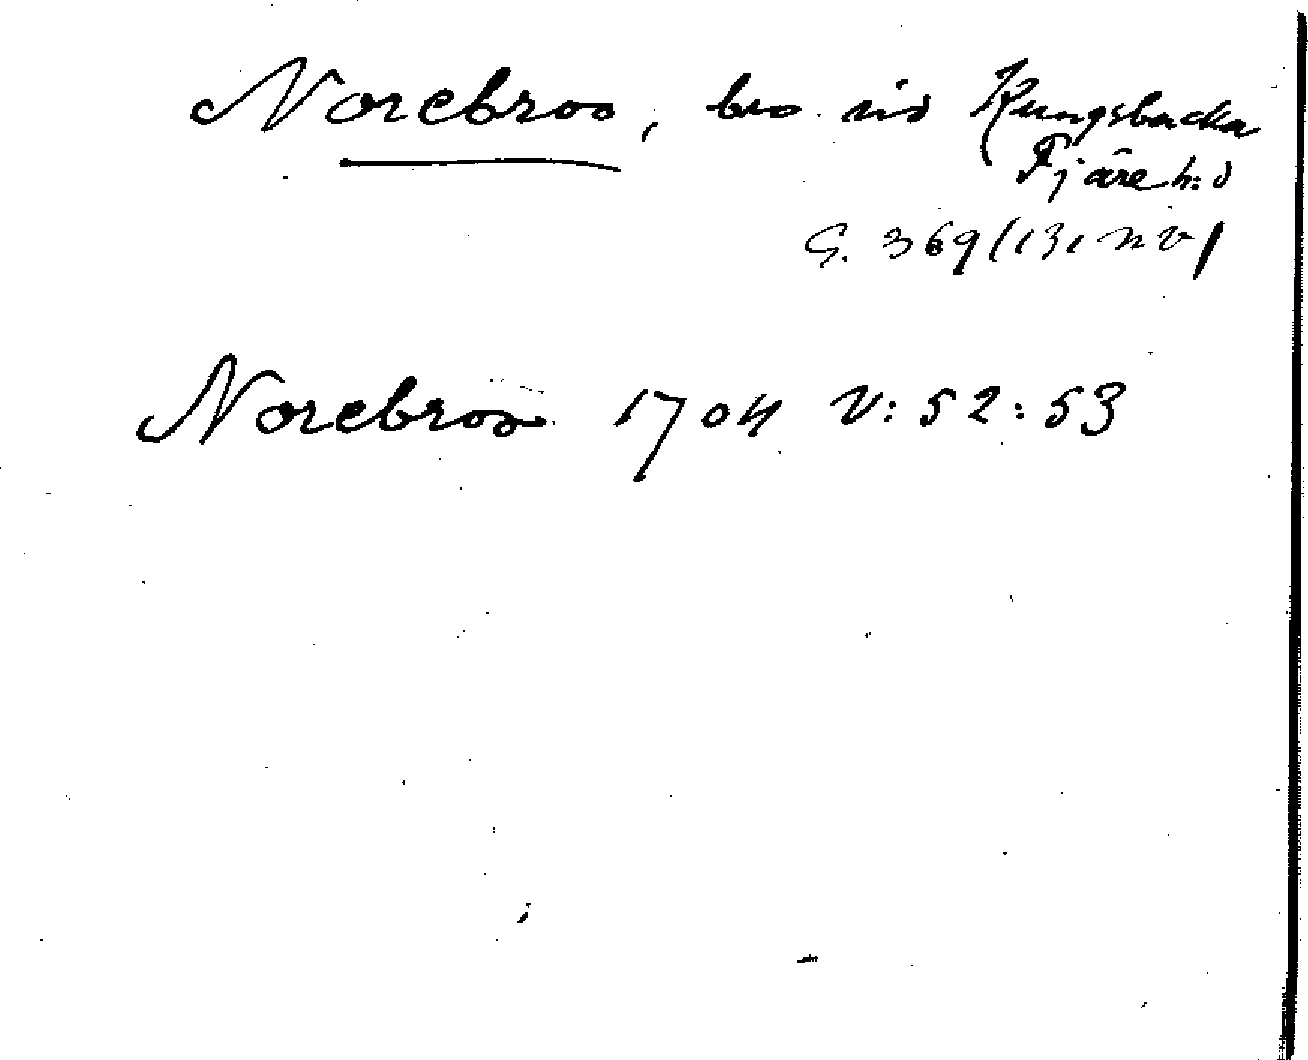 Norebroo, bro vid Kungsbacka
Fjäre h:d
G. 369 (131 n v)
Norebroo 1704 V: 52: 53